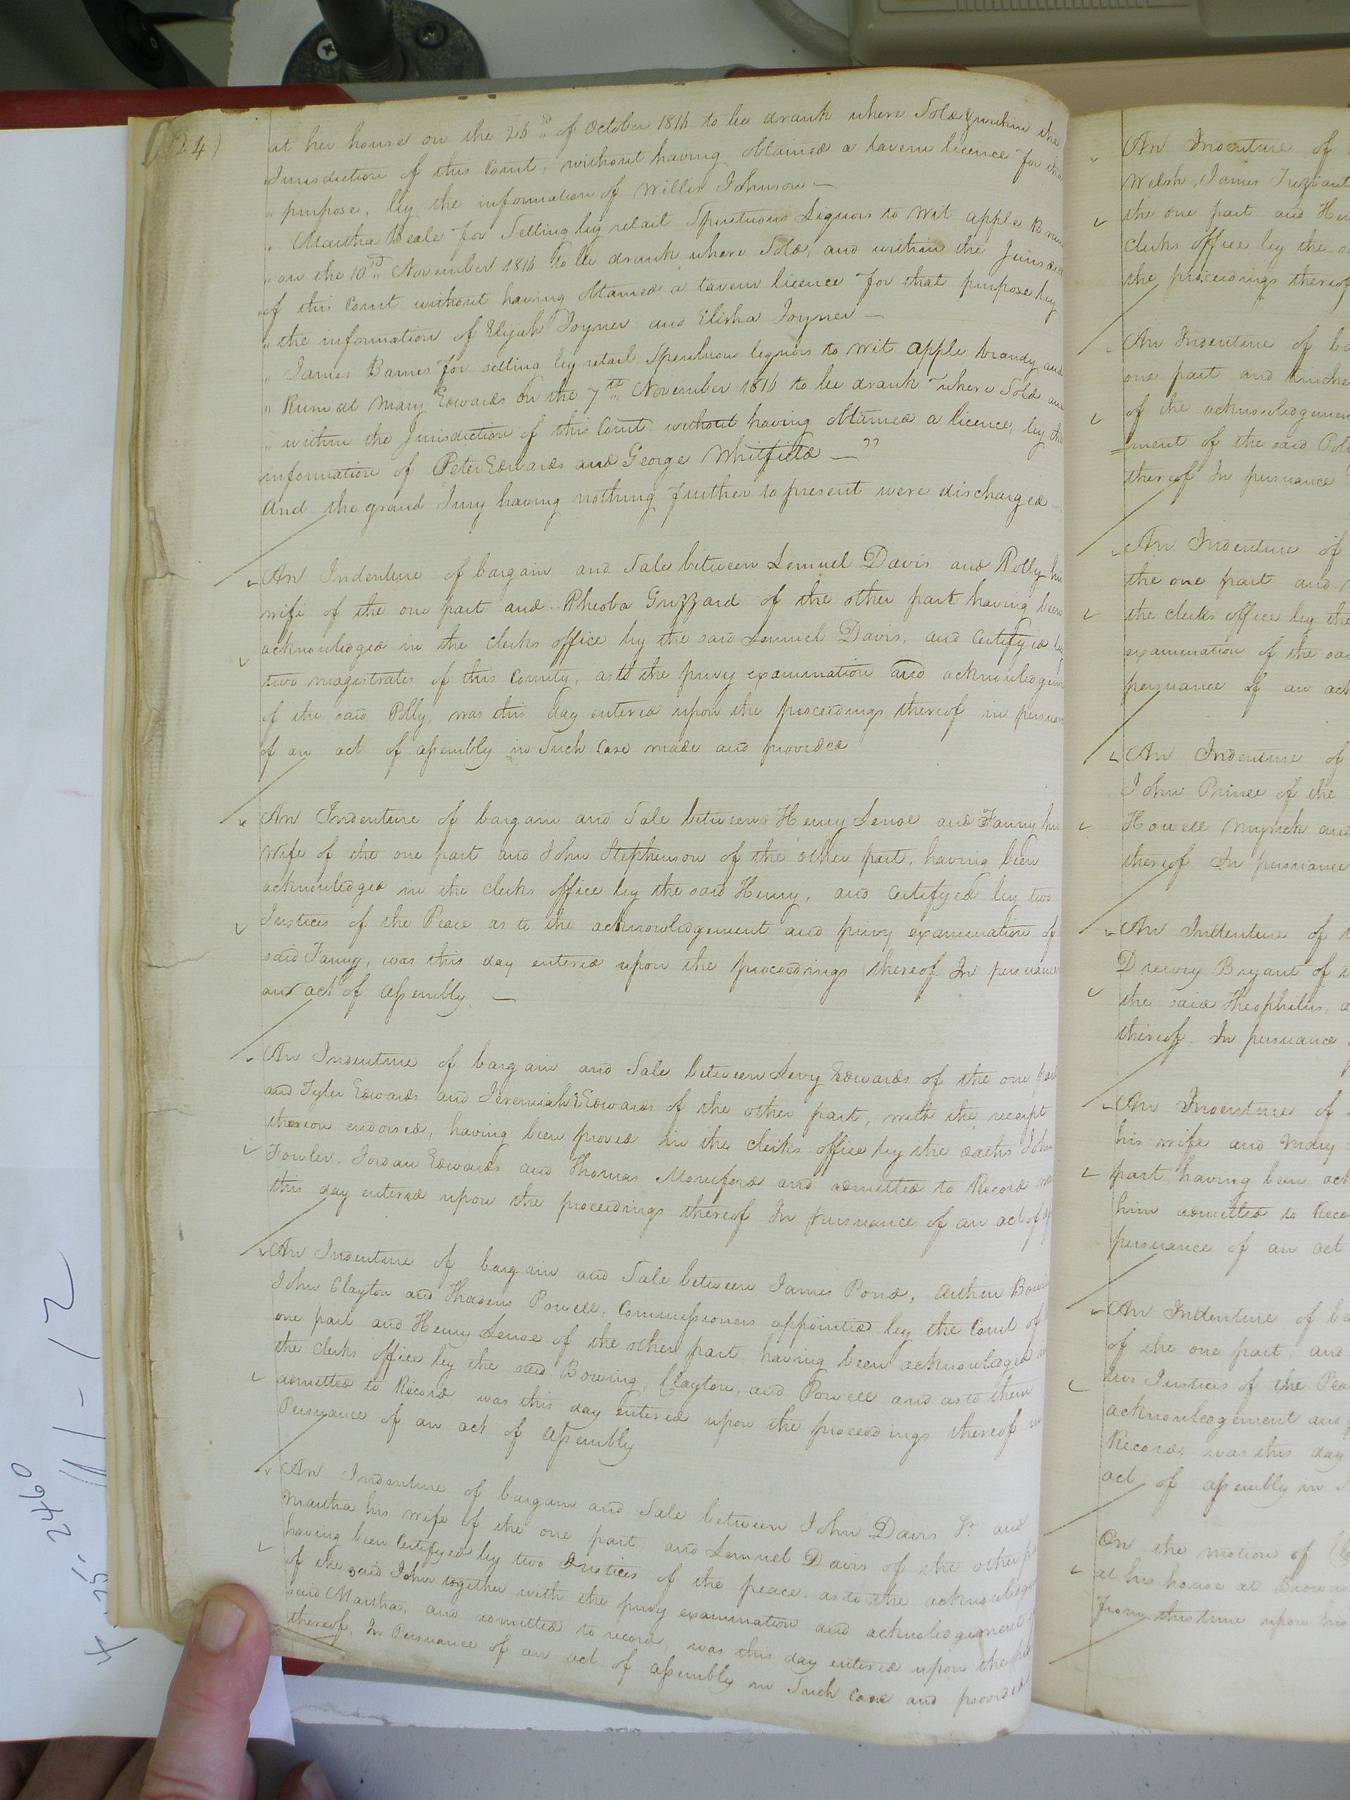 (24)
at her house on the 26th of October 1816 to be drank where Sold & within the
Jurisdiction of this Court, without having obtained a tavern licence for that
" purpose, by the information of Willie Johnson —
" Martha Beale for Selling by retail Spirituous Liquors to wit apple
" on the 10th November 1816 to be drank where Sold, and within the
of this Court without having obtained a tavern licence for that purpose by
" the information of Elijah Joyner and Elisha Joyner —
" James Barnes for selling by retail Spirituous liquors to wit apple brandy and
" Rum at Mary Edwards on the 7th November 1816 to be drank where Sold and
" within the Jurisdiction of this Court without having obtained a licence, by the
information of Peter Edwards and George Whitfield — "
And the grand Jury having nothing further to present were discharged
An Indenture of bargain and Sale between Lemuel Davis and Polly his
wife of the one part and Rhesba Grizzard of the other part having been
acknowledged in the clerks office by the said Lemuel Davis, and Certifyed by
two magistrates of this County, as to the privy examination and
of the said Polly, was this day entered upon the proceedings thereof in
of an act of assembly in Such Case made and provided
An Indenture of bargain and Sale between Henry Lenoe and Fanny his
Wife of the one part and John Stephenson of the other part, having been
acknowledged in the clerks office by the said Henry, and Certifyed by two
Justices of the Peace as to the acknowledgement and privy examination of
said Fanny, was this day entered upon the proceedings thereof In
an act of assembly —
An Indenture of bargain and Sale between Levy Edwards of the one
and Tyler Edwards and Jeremiah Edwards of the other part, with the receipt
thereon endorsed, having been proved in the clerks office by the oaths John
Fowler, Jordan Edwards and Thomas and admitted to Record
this day entered upon the proceedings thereof In pursuance of an act of
An Indenture of bargain and Sale between James Pond,
John Clayton and Powell, Commissioners appointed by the Court of
one part and Henry Lenoe of the other part, having been acknowledged
the clerks office by the said Bowing, Clayton, and Powell and as to them
admitted to Record was this day entered upon the proceedings thereof in
Persuance of an act of assembly
An Indenture of bargain and Sale between John Davis Sr and
Martha his wife of the one part, and Lemuel Davis of the other
having been Certifyed by two Justices of the peace as to the
of the said John together with the privy examination and acknowledgement
said Martha, and admitted to record, was this day entered upon the
thereof, In Persuance of an act of assembly in Such Case and provided
An Indenture of
Welsh, James
the one part and
clerks office by the
the proceedings thereof
An Indenture of
one part and
of the acknowledgement
ment of the said
thereof In persuance
An Indenture of
the one part and
the clerks office by the
examination of the said
persuance of an act
An Indenture of
John Prince of the
Howell Myrick and
thereof In persuance
An Indenture of
Drewry Bryant of
the said Theophilus,
thereof. In persuance
An Indenture of
his wife and Mary
part, having been
him admitted to
persuance of an act
An Indenture of
of the one part, and
two Justices of the
acknowledgement and
Record, was this day
act of assembly in
On the motion of
at his house at
from this time upon his
4.25. 2460
11 - 12